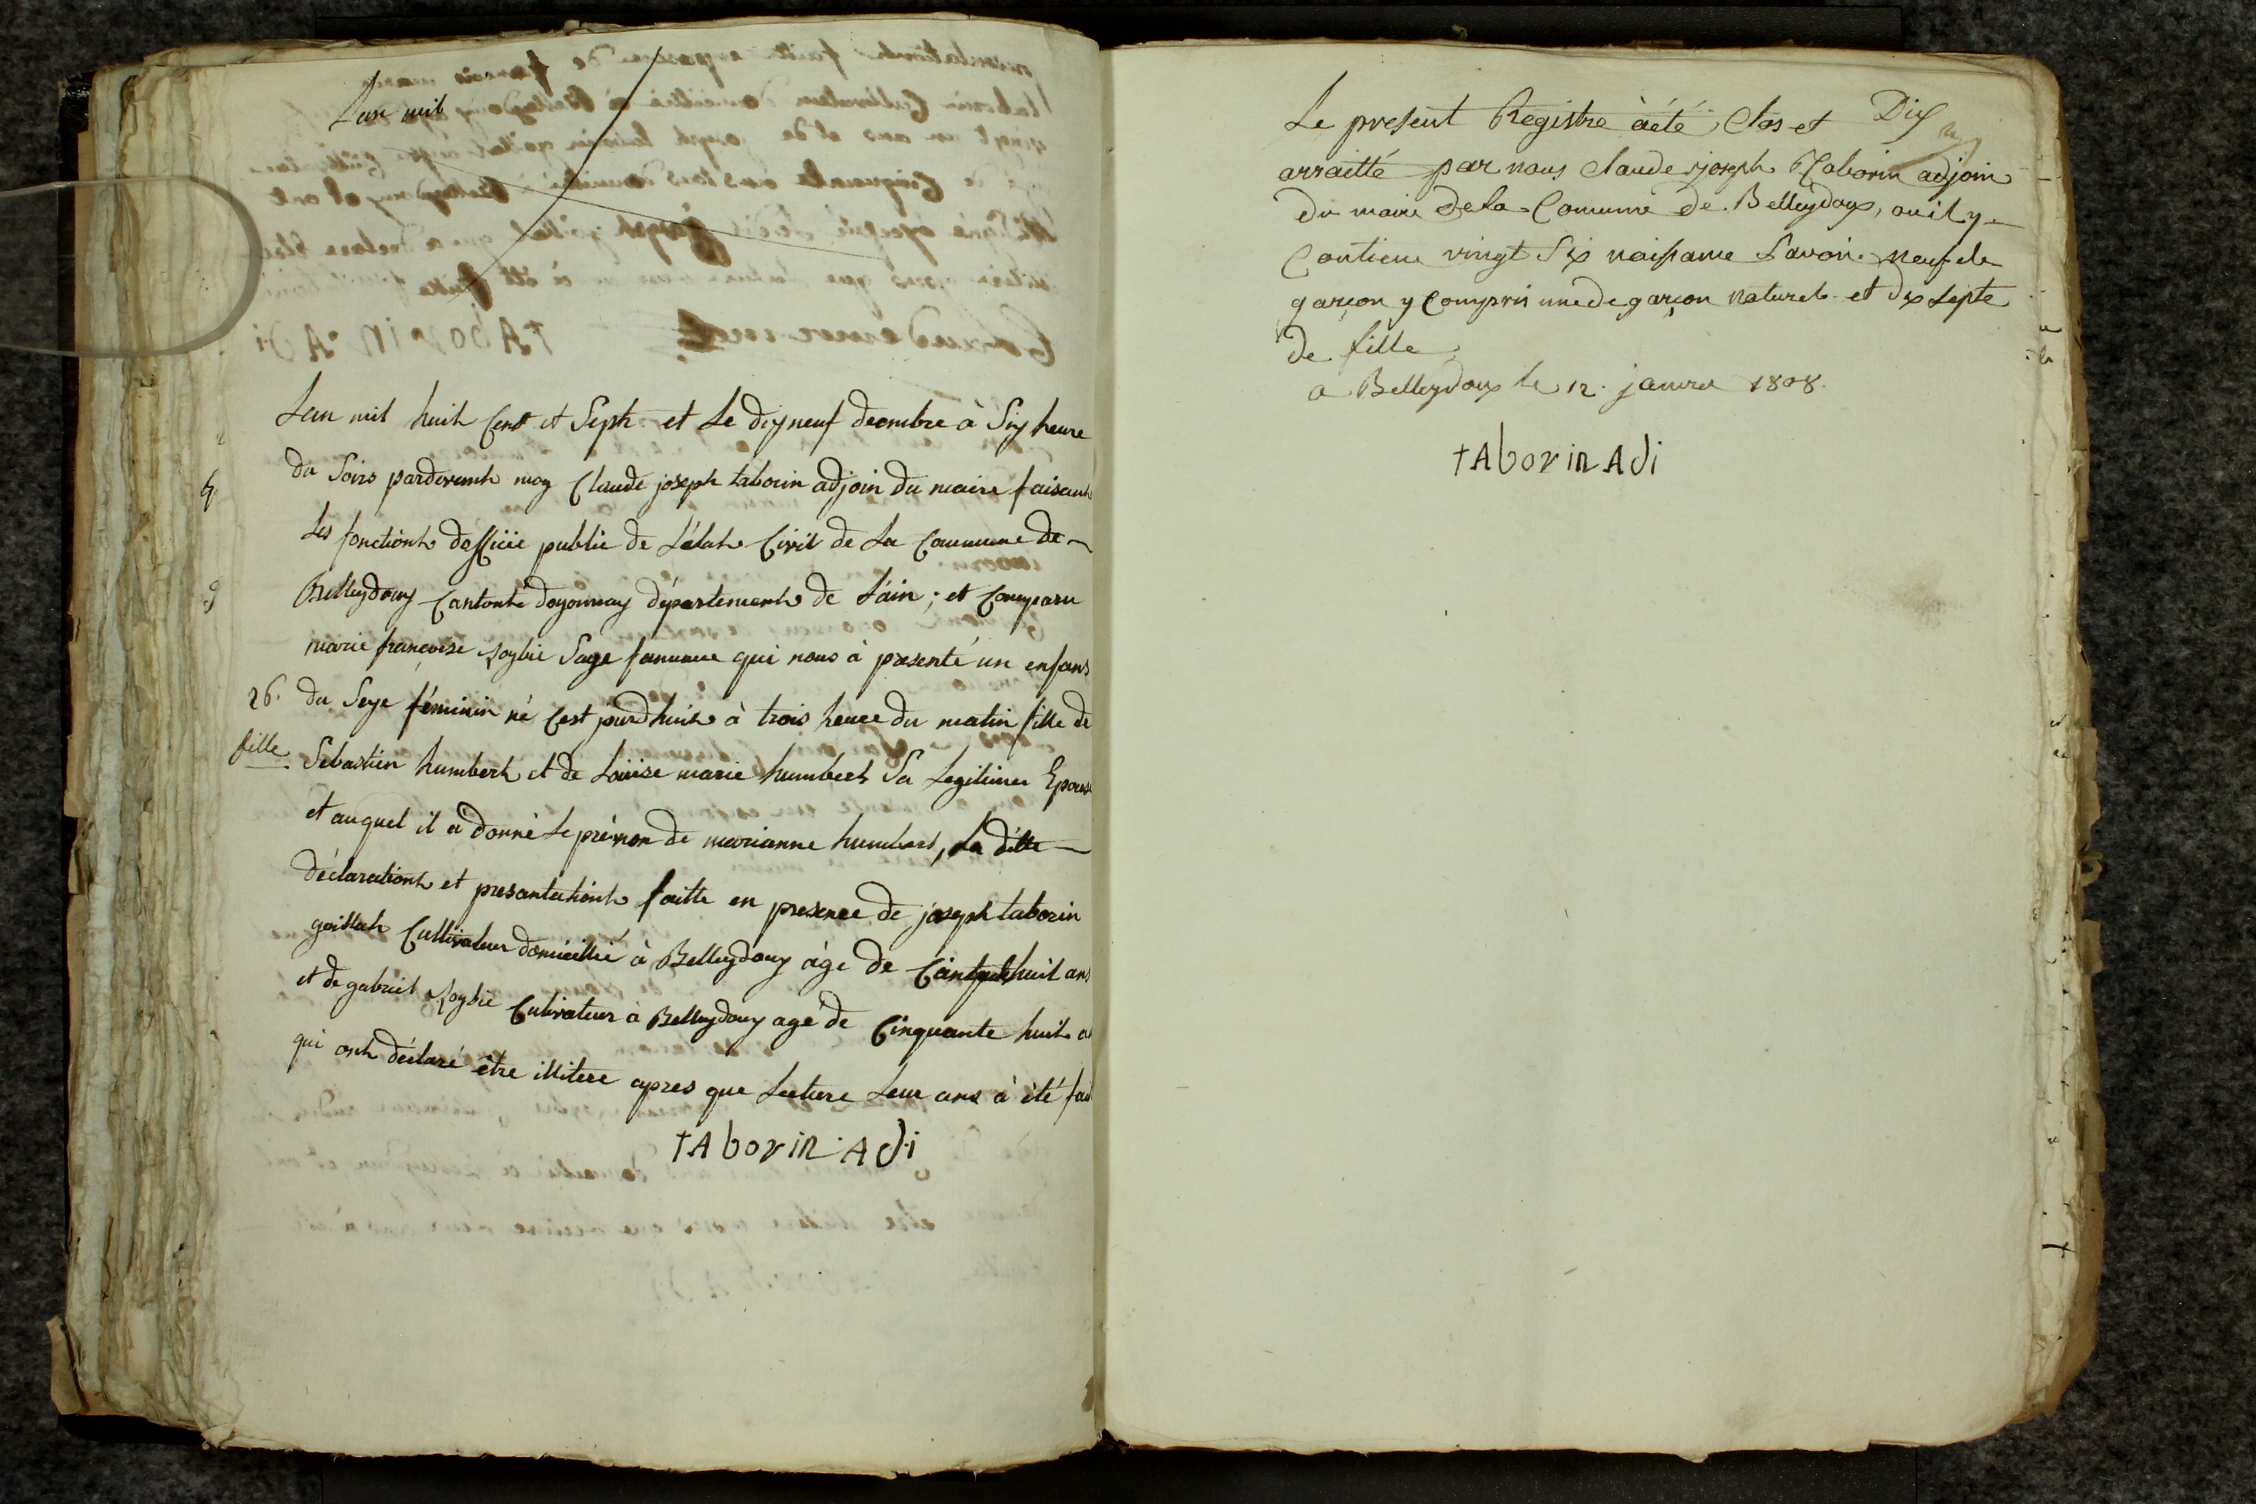 Lan mil
Lan mil huit Cent et Septs et Le dixneuf decembre à Six heure
du Soirs pardevents moy Claude joseph taborin adjoin du maire faisant
Les fonctionts dofficiée public de Létats Civil de La Commune de
Belleydoux Cantonts doyonnax départements de Láin ; et Comparu
marie françoise Sage fammme qui nous à presenté un enfans
26. du Sexe féminin né Cest jourdhuits à trois heure du matin fille de
fille Sebastien humbert et de Loüise marie humbert Sa Legitimes Epouse
et auquel il à donné Le prénon de marianne humbert, La ditte
déclarationts et presantationts faitte en presence de joseph taborin
goillats Cultivateur domicillié à Belleydoux âgé de huit ans
et de gabriel Cultivateur à Belleydoux agé de Cinquante huit a
qui onts déclaré être illitere apres que Lecture Leur ans à été fai
tAborin Adi
Dix
Le present Registre àété Clos et
arraitté par nous Claude joseph Taborin adjoin
du maire de la Comune de Belleydoux, ou il y
Contient vingt Six naissance Savoir neuf de
garçon y Compris une de garçon naturels et dix Septe
de fille
a Belleydoux le 12. janvier 1808.
tAborin Adi